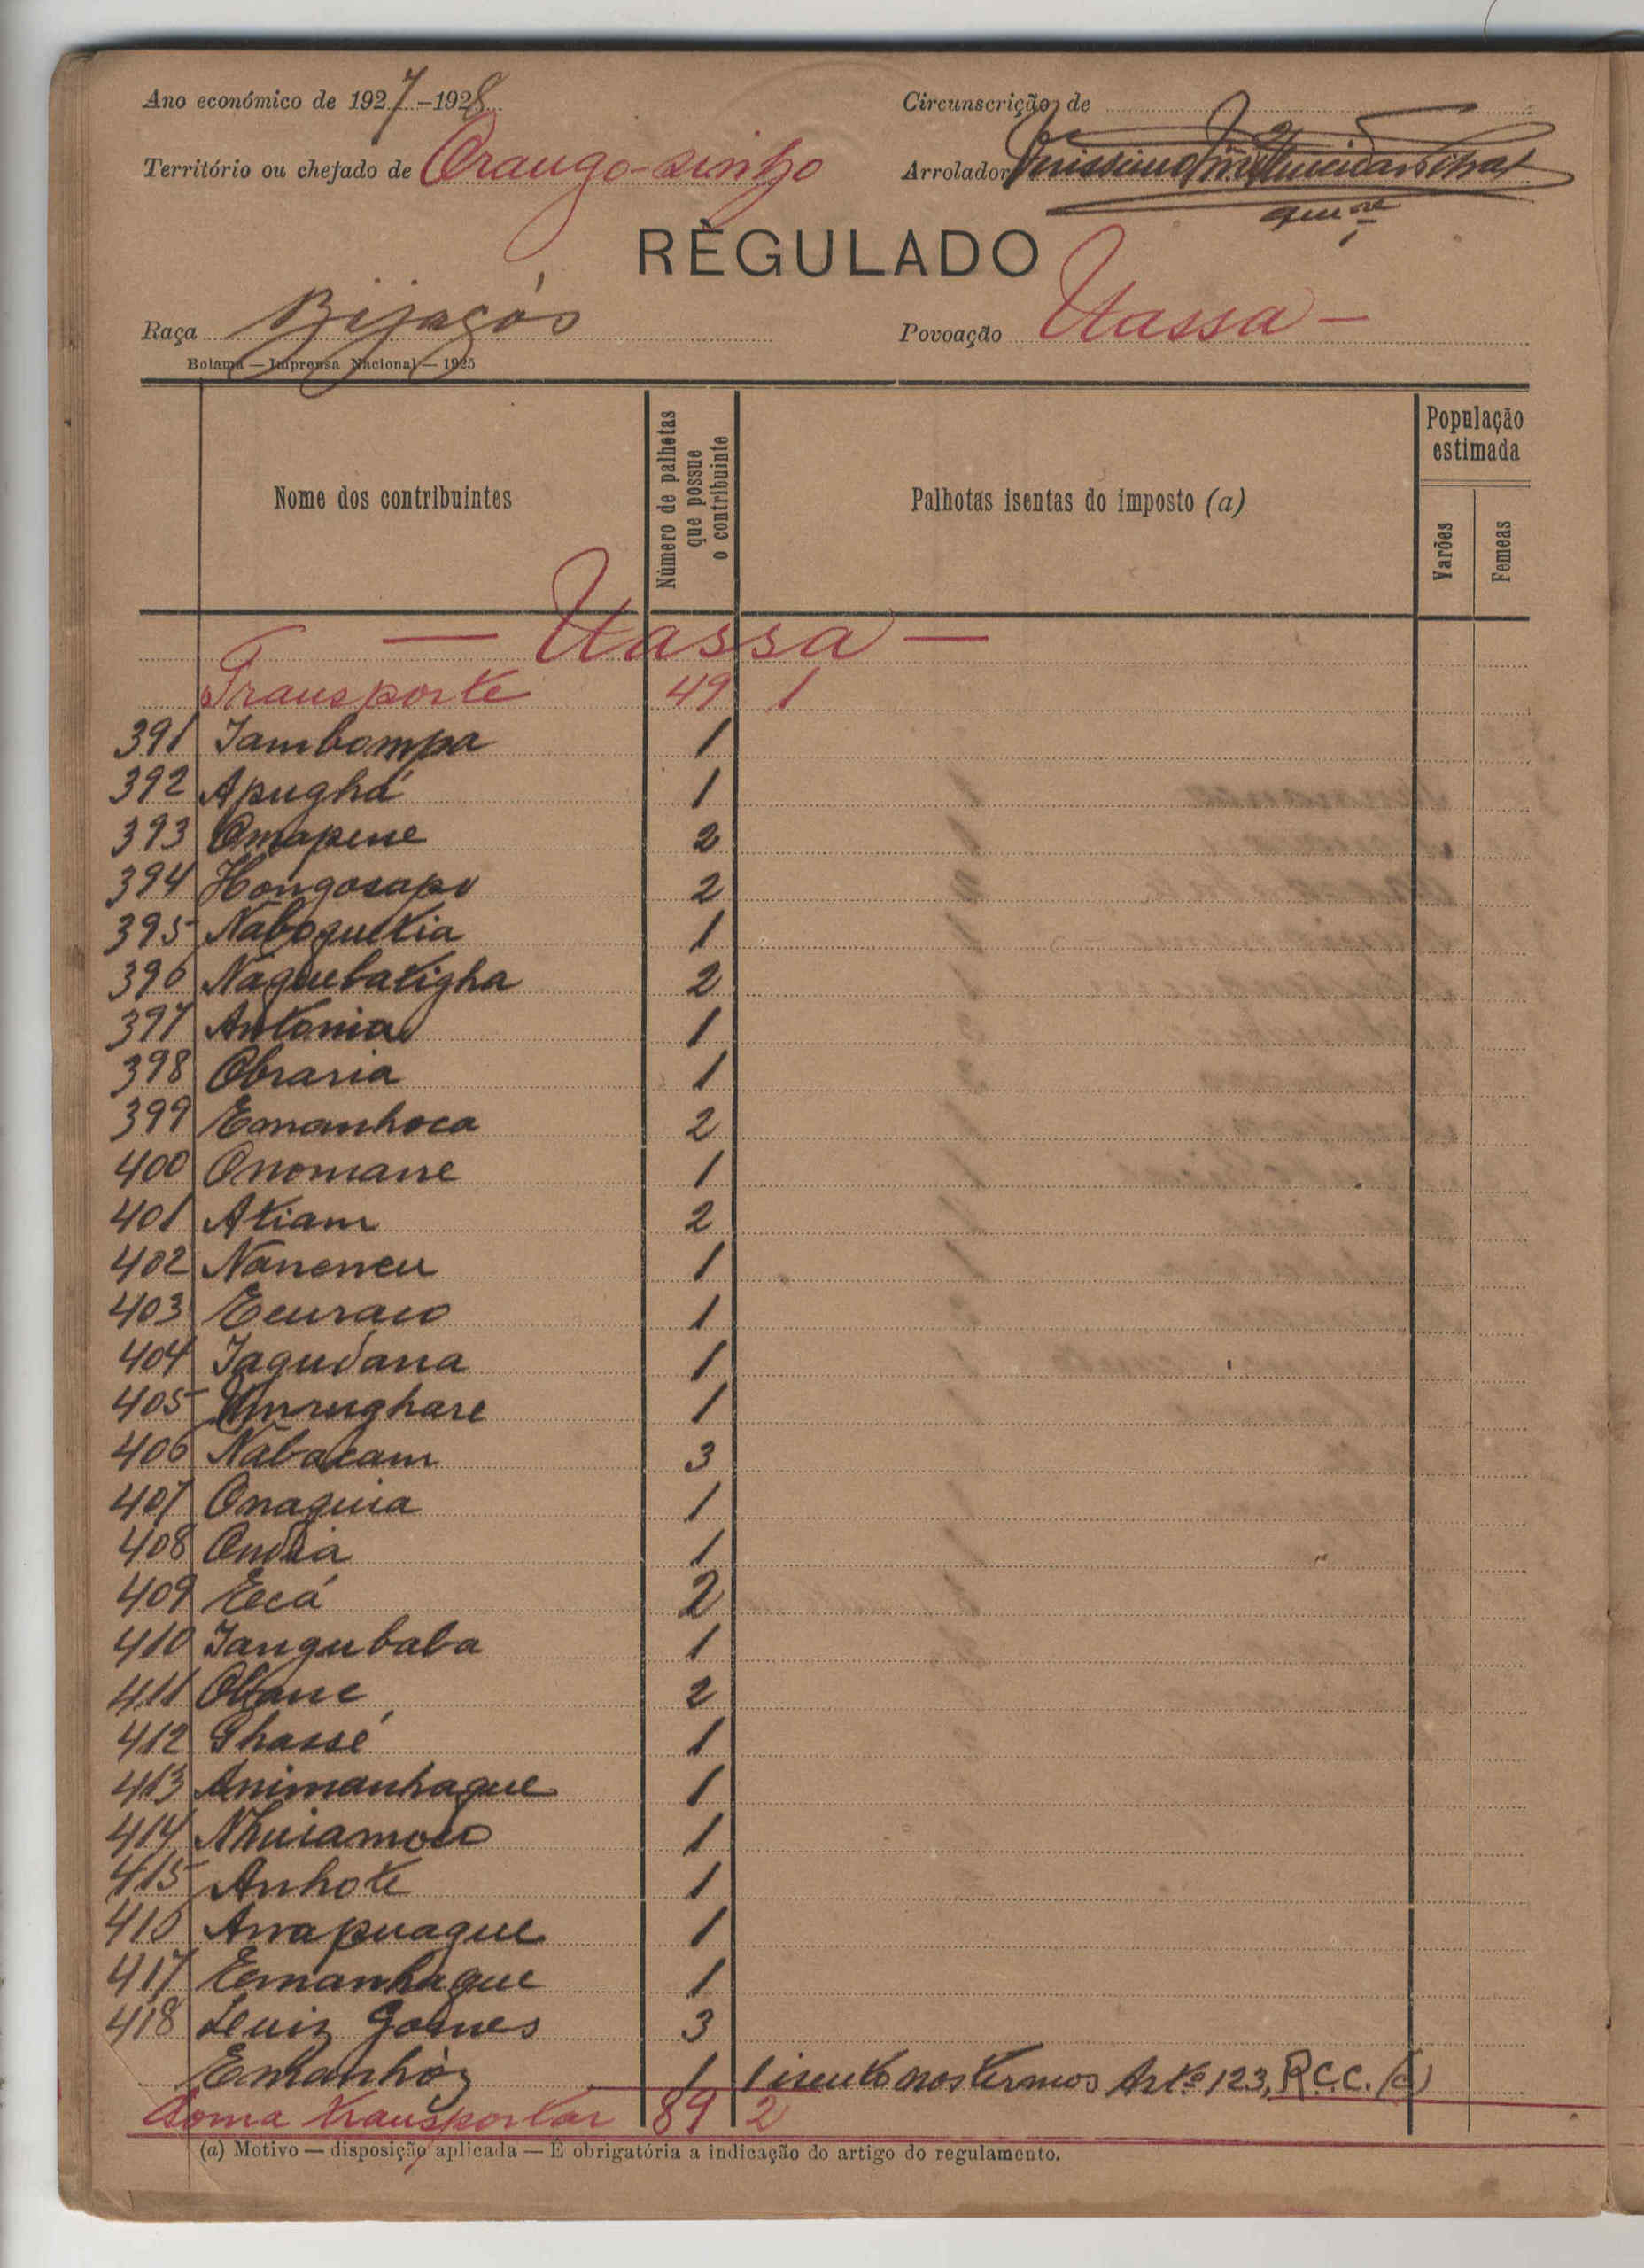 Ano económico de 1927-1928
Circunscrição de
Território ou chefado de Orango-zinho
Arrolador
REGULADO
Raça Bijagós
Povoação Uassa -
Bolama — Imprensa Nacional — 1925
Nome dos contribuintes
Número de palhotas que possue o contribuinte
Palhotas isentas do imposto (a)
População estimada
Varões
Femeas
— Uassa —
Transporte 49 1
391 Iambompa 1
392 Apughá 1
393 Omapene 2
394 Hongosapo 2
395 Naboquetia 1
396 Naquebatigha 2
397 Antonia 1
398 Obraria 1
399 Emanhoca 2
400 Onomane 1
401 Atiam 2
402 Naneneu 1
403 Ecuraco 1
404 Iagudana 1
405 1
406 Nabacam 3
407 Onaquia 1
408 1
409 Ecá 2
410 Iangubaba 1
411 2
412 Ghassé 1
413 Animanhaque 1
414 1
415 Anhote 1
416 Anapuaque 1
417 Emanhaque 1
418 Luiz Gomes 3
Enhanhóz 1 1 isento nos termos Artº 123, R.C.C.
Soma transportar 89 2
(a) Motivo — disposição aplicada — É obrigatória a indicação do artigo do regulamento.